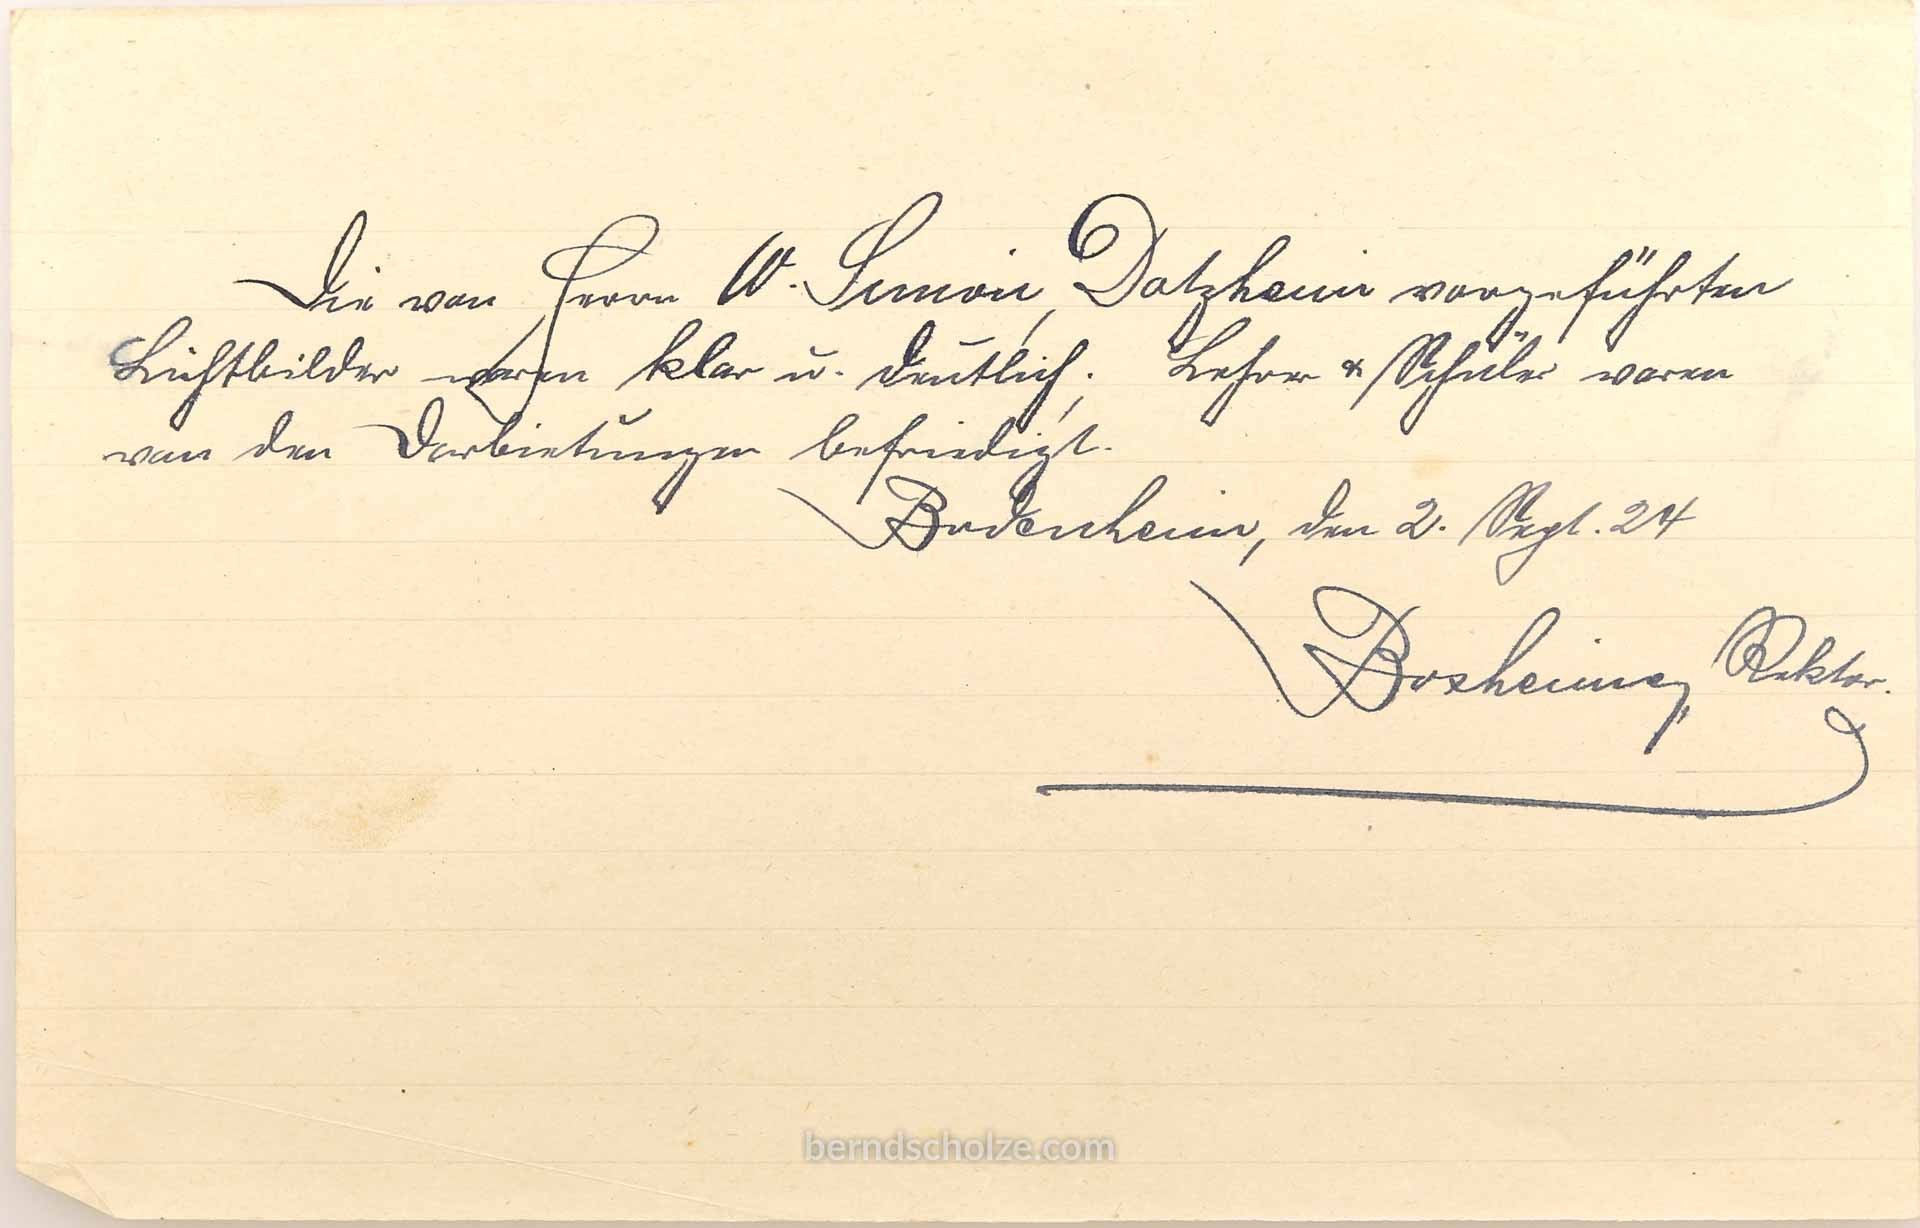 Die von Herrn W. Simon, Dotzheim vorgeführten
Lichtbilder waren klar u. deutlich; Lehrer & Schüler waren
von den Darbietungen befriedigt.
Bodenheim, den 2. Sept. 24
Rektor.
berndscholze.com